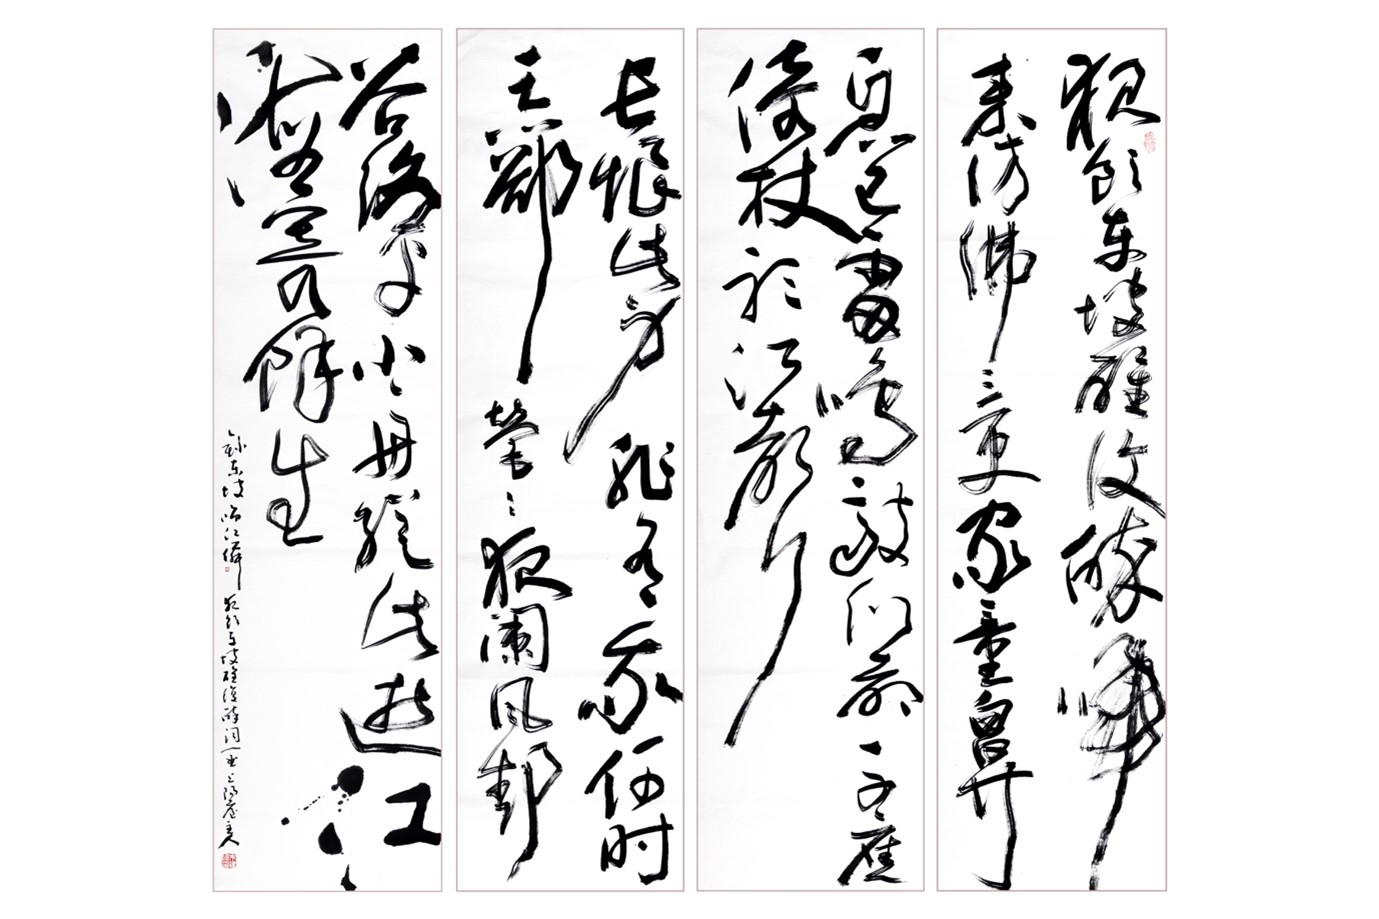 夜饮东坡醒复醉归
来仿佛三更家童鼻
息已雷鸣敲门都不应
倚杖听江声
长恨此身非我有何时
忘却营々夜阑风静
谷纹平小舟从此逝江
海寄余生
苏东坡临江仙 夜饮东坡醒复醉词一